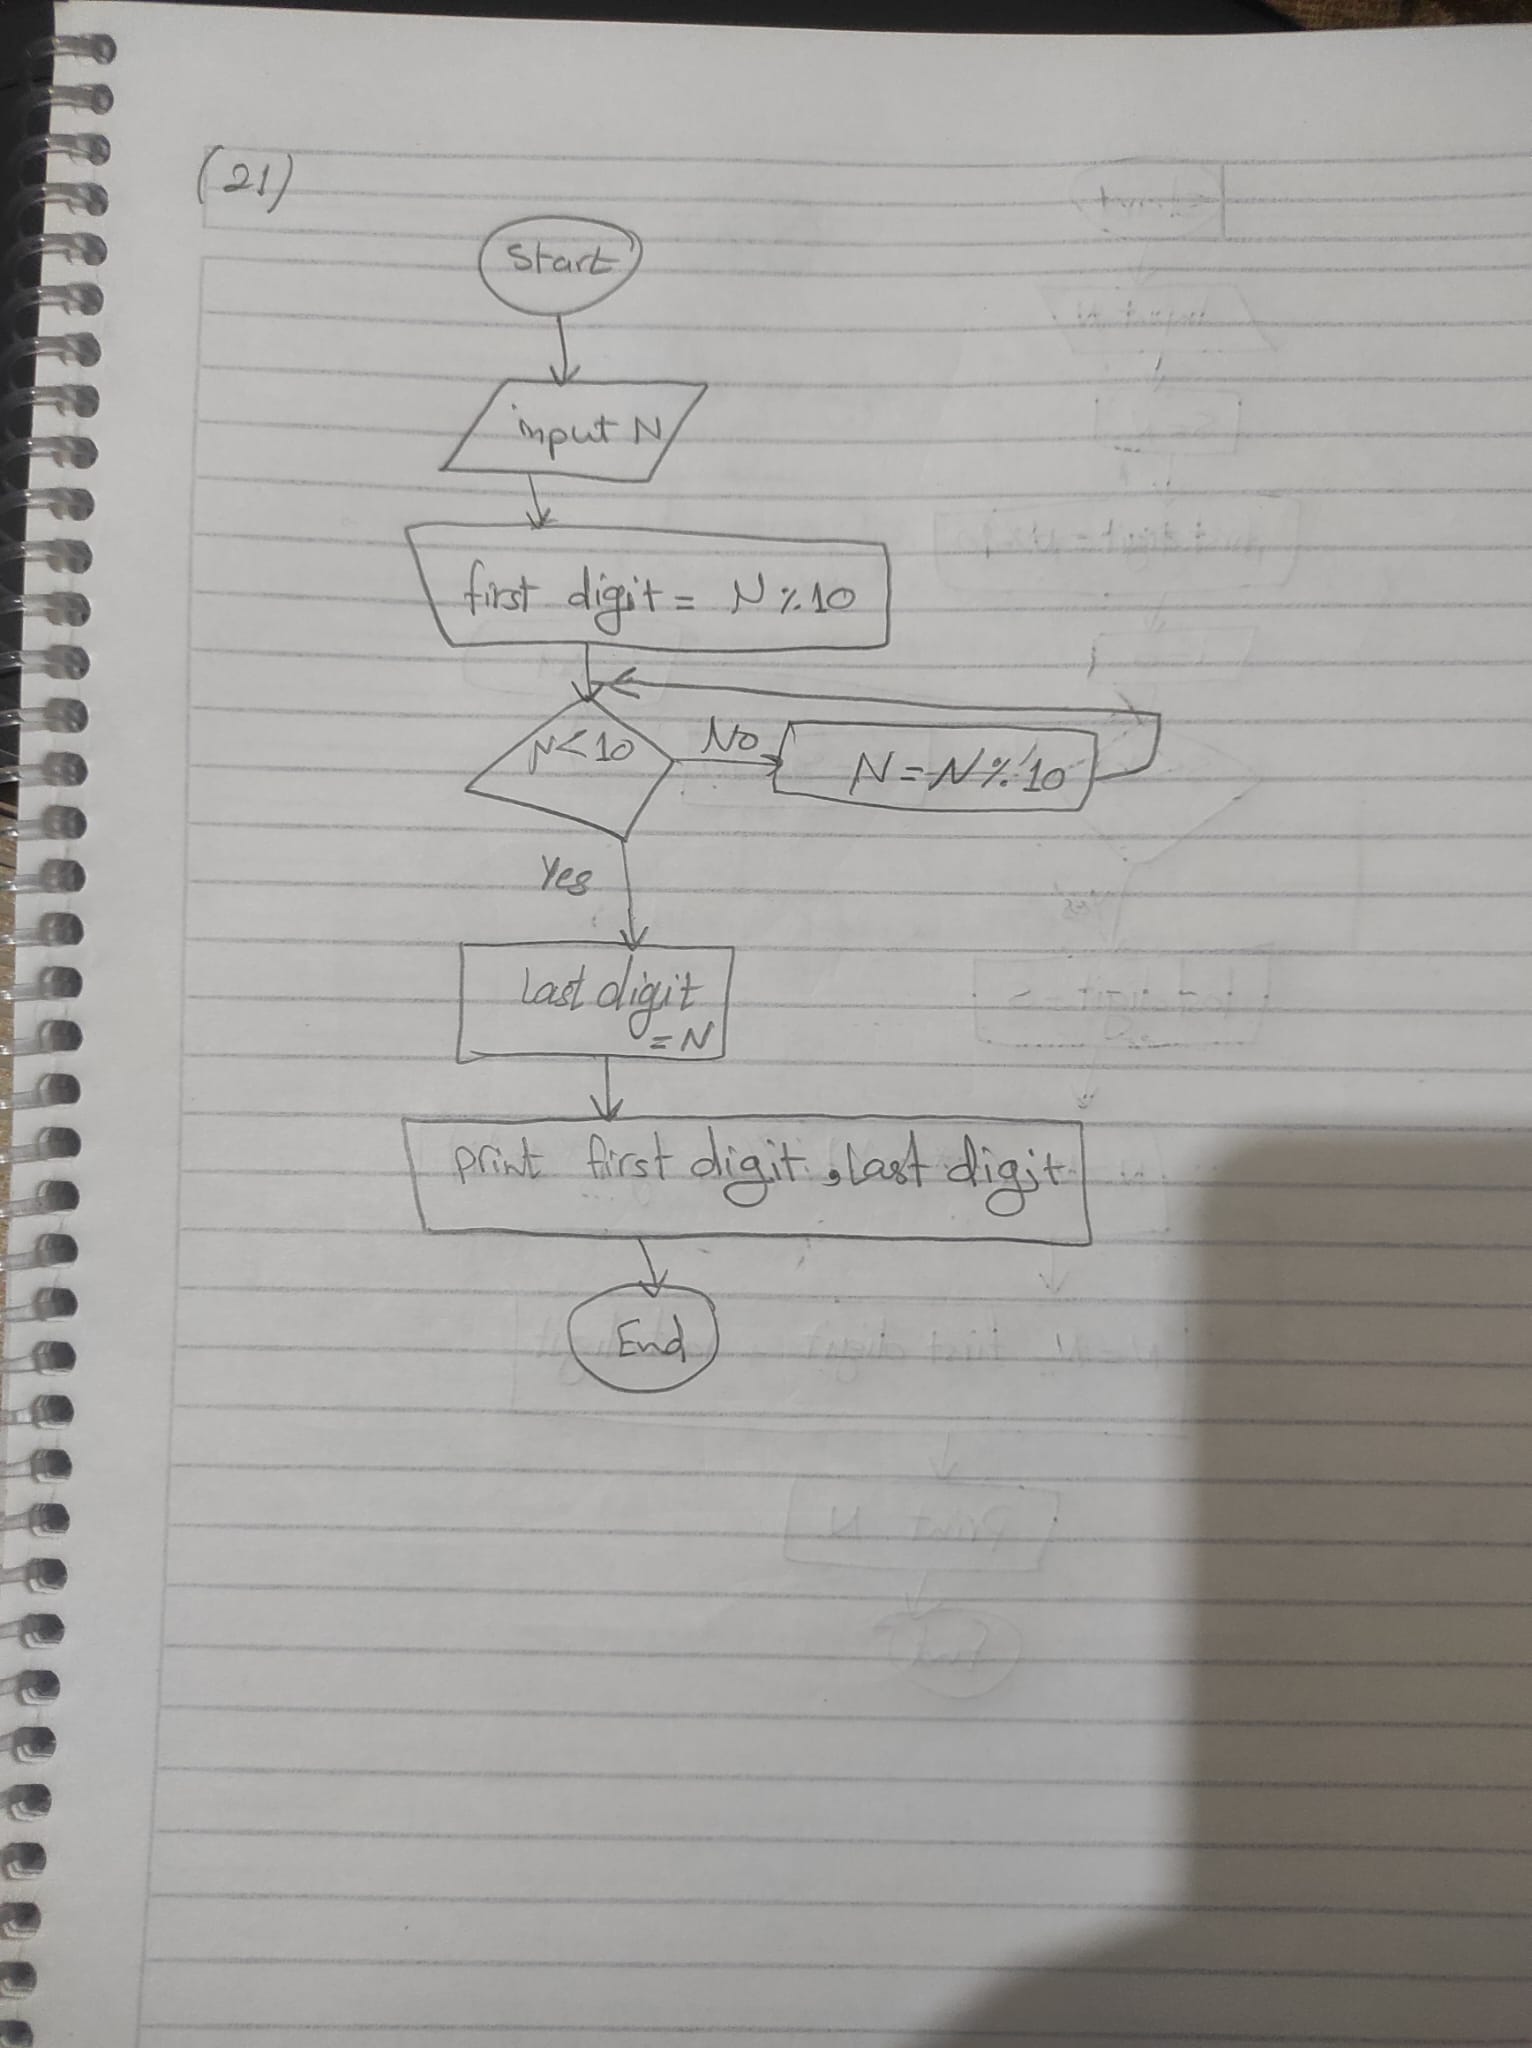 (21)
Start
input N
first digit = N % 10
N < 10
No
N = N % 10
Yes
Last digit
= N
print first digit, last digit
End